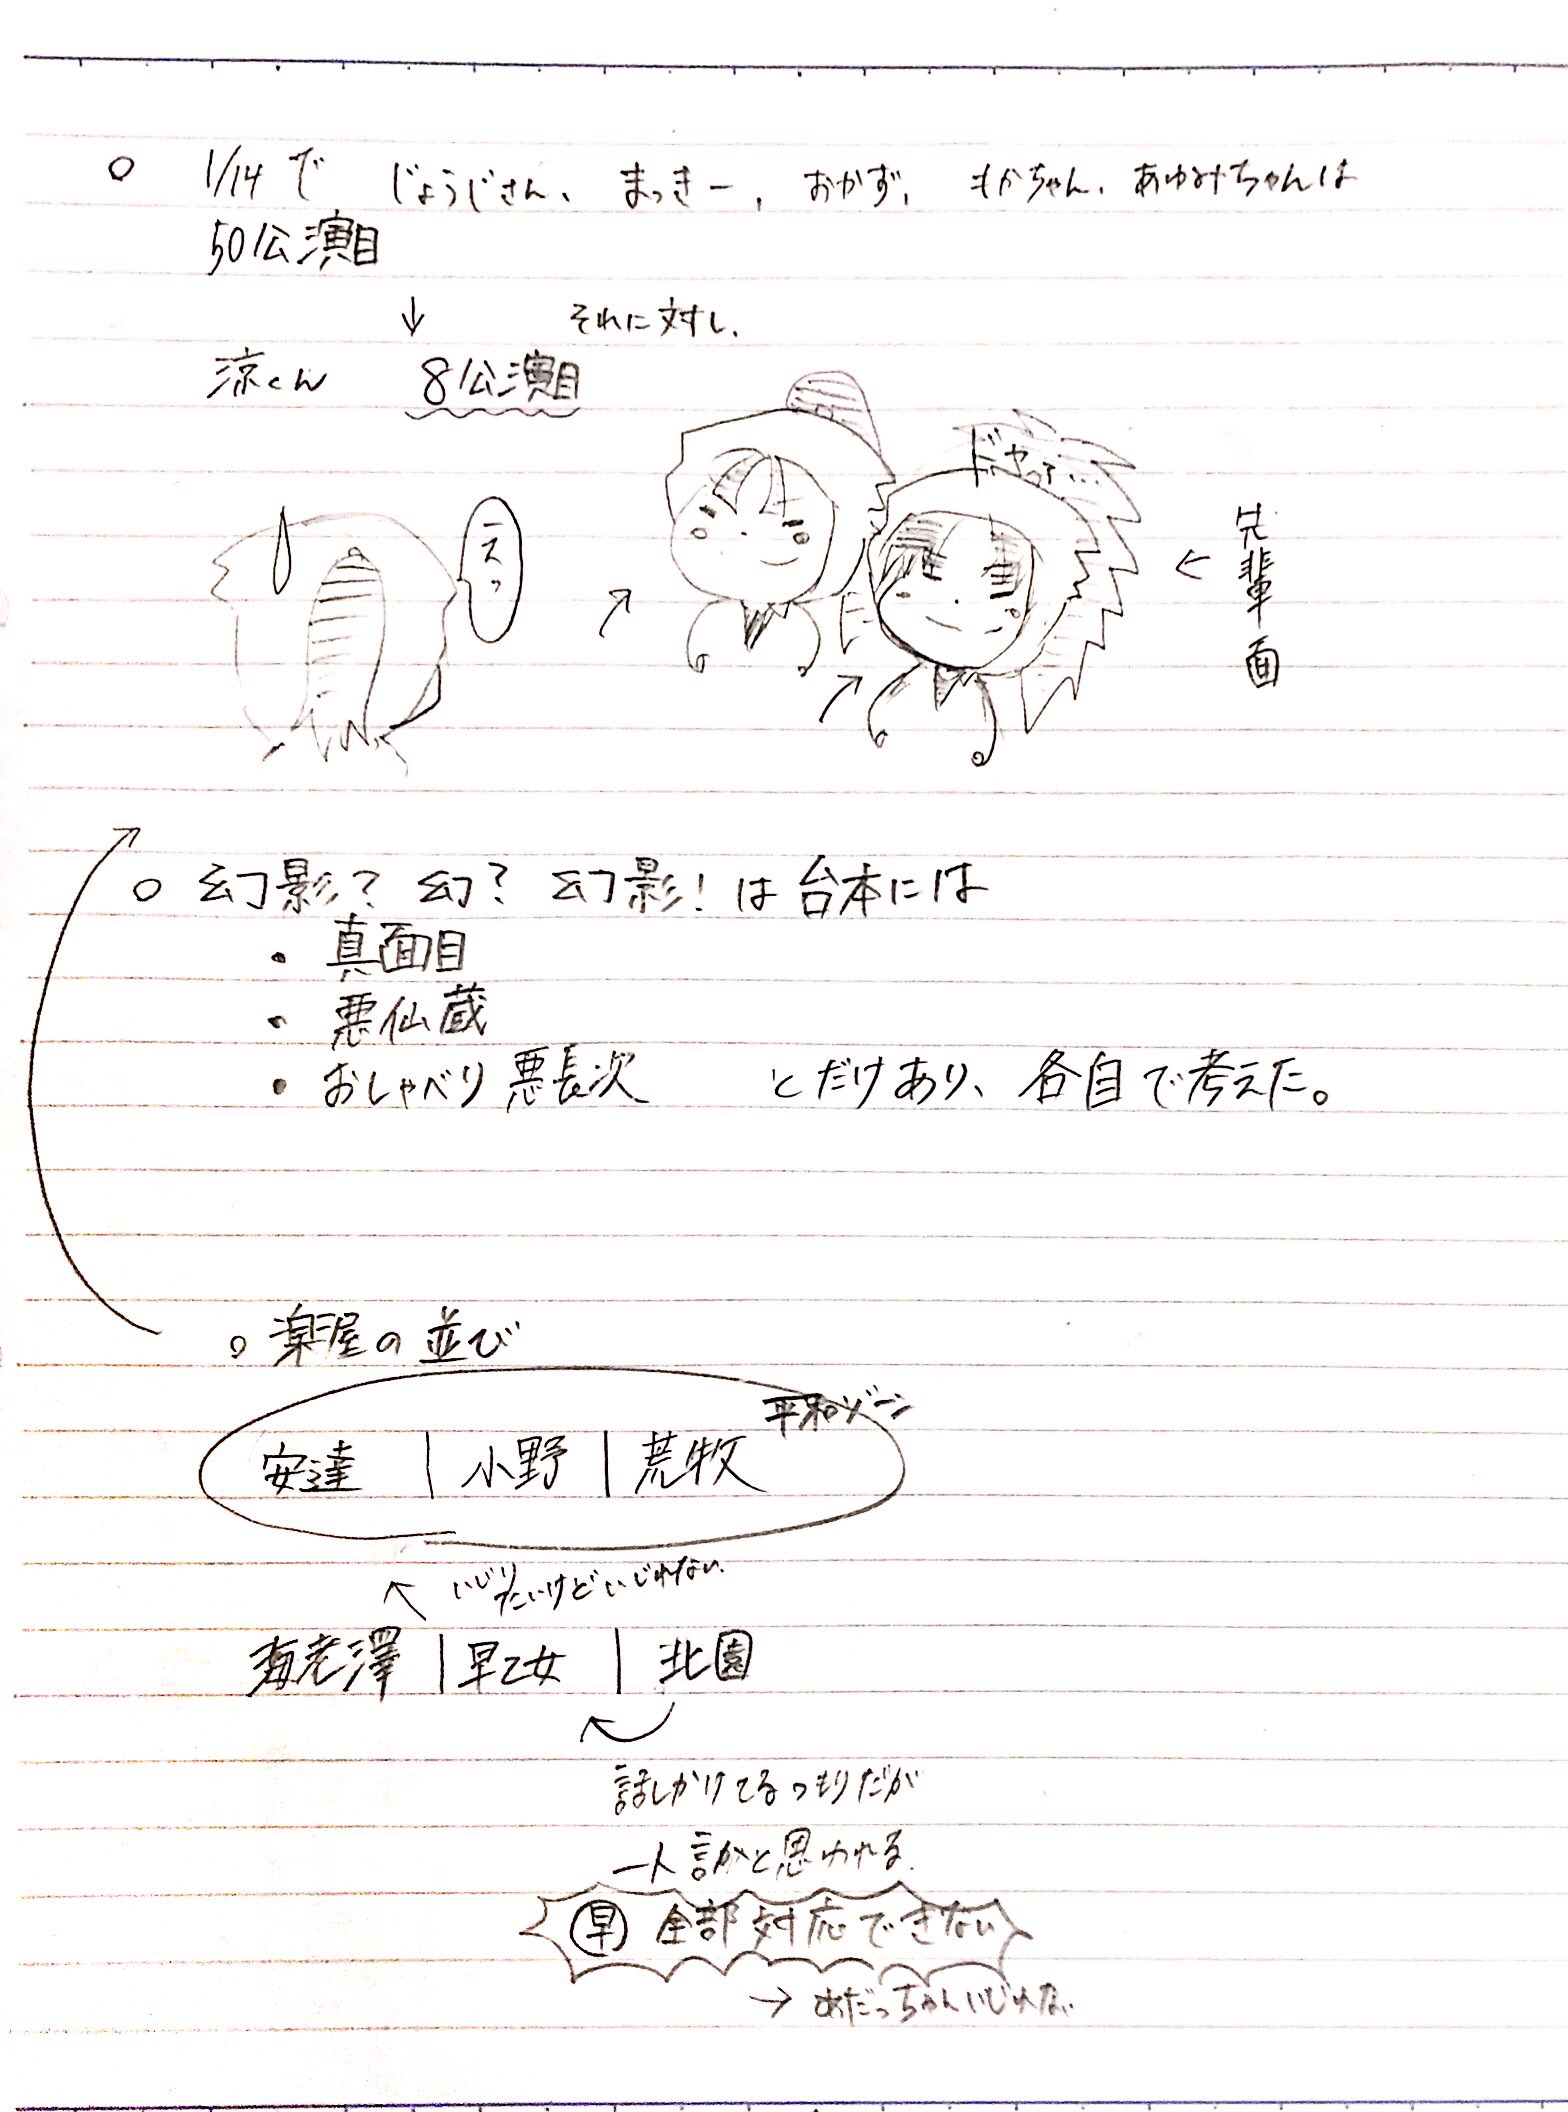 ○ 1/14で じょうじさん、まっきー、おかず、もかちゃん、あゆみちゃんは
50公演目
↓ それに対し、
涼くん 8公演目
ドヤってぃ…
えっ
← 先輩面
○ 幻影？幻？幻影！は台本には
・真面目
・悪仙蔵
・おしゃべり悪長次 とだけあり、各自で考えた。
○ 楽屋の並び
平和ゾーン
安達 | 小野 | 荒牧
いじりたいけどいじれない
海老澤 | 早乙女 | 北園
話しかけてるつもりだが
一人言かと思われる
早 全部対応できない
→ あだっちゃんいじれない